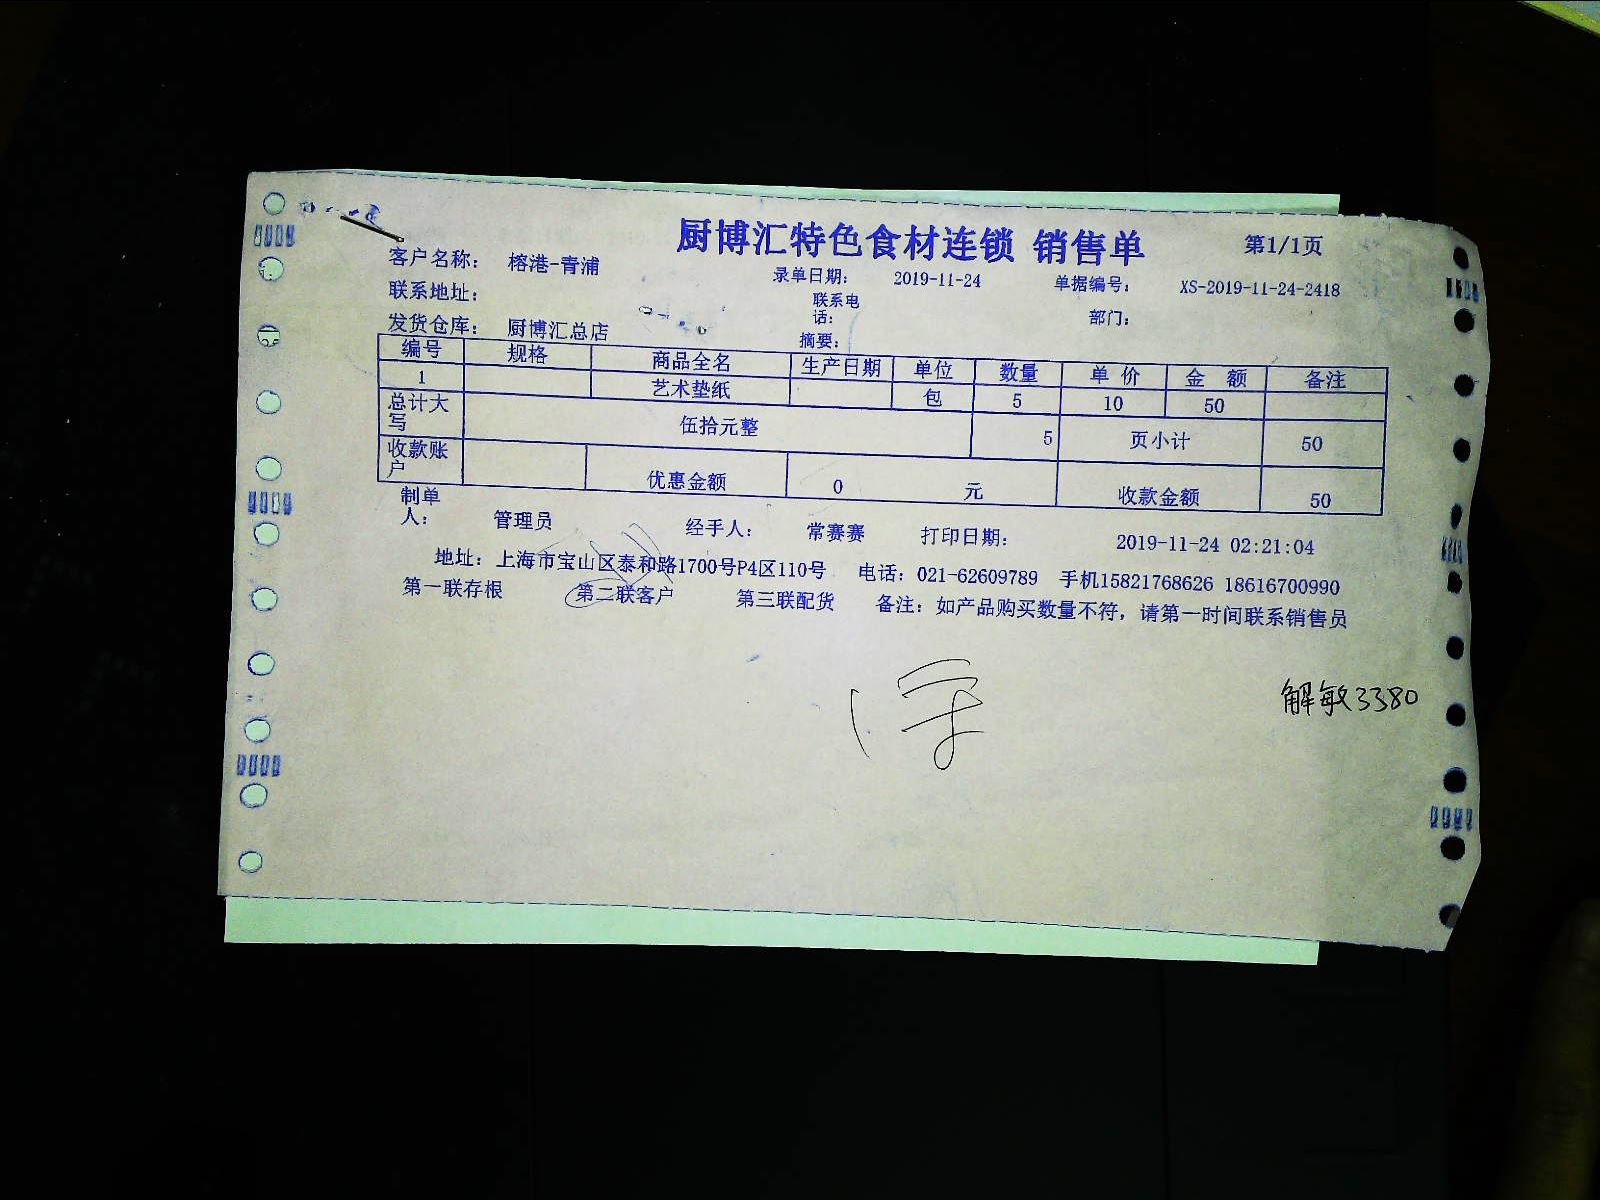 厨博汇特色食材连锁 销售单 第1/1页
客户名称： 榕港-青浦 录单日期： 2019-11-24 单据编号： XS-2019-11-24-2418
联系地址： 联系电话： 部门：
发货仓库： 厨博汇总店 摘要：
编号 规格 商品全名 生产日期 单位 数量 单 价 金 额 备注
1 艺术垫纸 包 5 10 50
总计大写 伍拾元整 5 页小计 50
收款账户 优惠金额 0 元 收款金额 50
制单人： 管理员 经手人： 常赛赛 打印日期： 2019-11-24 02:21:04
地址：上海市宝山区泰和路1700号P4区110号 电话：021-62609789 手机15821768626 18616700990
第一联存根 第二联客户 第三联配货 备注：如产品购买数量不符，请第一时间联系销售员
解敏3380